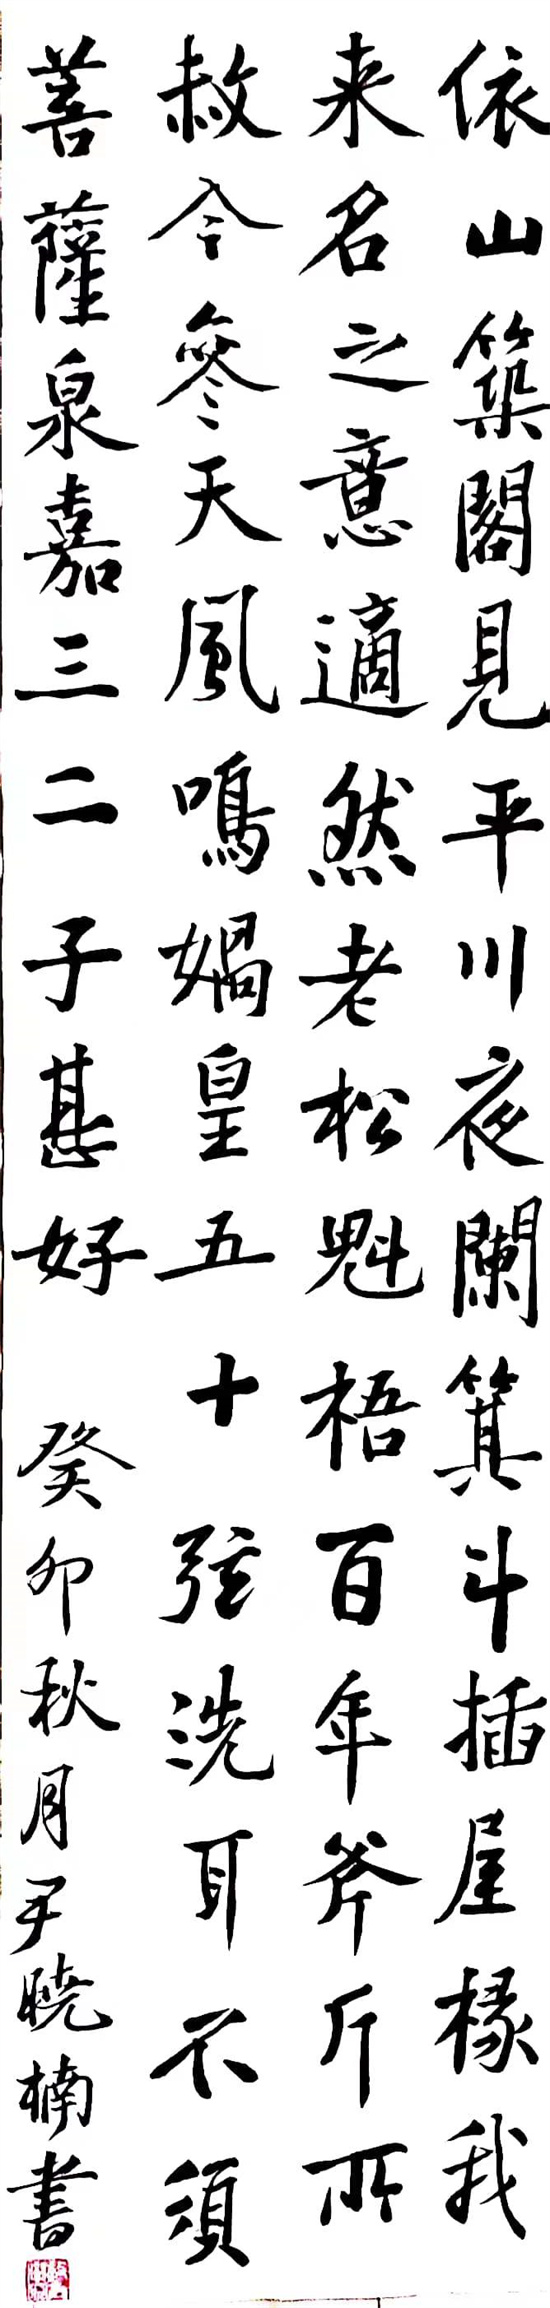 依山築閣見平川夜闌箕斗插屋椽我
来名之意適然老松魁梧百年斧斤所
赦今參天風鳴媧皇五十弦洗耳不須
菩薩泉嘉三二子甚好 癸卯秋月尹曉楠書